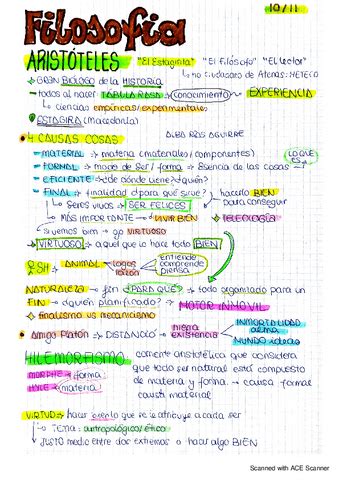 Filosofía
10/11
ARISTÓTELES "El Estagirita" "El Filósofo" "El Lector"
GRAN BIÓLOGO de la HISTORIA
no ciudadano de Atenas: METECO
todos al nacer: TABULA RASA → conocimiento → EXPERIENCIA
↳ ciencias empíricas/experimentales
ESTAGIRA (Macedonia)
4 CAUSAS COSAS
ALBA ROIS AGUIRRE
MATERIAL → materia (materiales / componentes)
FORMAL → modo de ser / forma → Esencia de las cosas
LO QUE ES
EFICIENTE → ¿de dónde viene? ¿quién?
FINAL → finalidad ¿para qué sirve?
hacerlo BIEN para conseguir
↳ Seres vivos → SER FELICES
↳ MÁS IMPORTANTE → VIVIR BIEN
TELEOLOGÍA
si vemos bien → so VIRTUOSO
VIRTUOSO → aquel que lo hace todo BIEN
ANIMAL → logos razón
entiende
comprende
piensa
NATURALEZA → fin ¿PARA QUÉ? → todo organizado para un
FIN → ¿quién planificado? → MOTOR INMÓVIL
finalismo vs mecanicismo
Amigo Platón → DISTANCIÓ → niega existencia
INMORTALIDAD alma
MUNDO ideas
HILEMORFISMO corriente aristotélica que considera
MORPHE → forma que todo ser natural está compuesto
HYLE → materia de materia y forma → causa formal
causa material
VIRTUD → hacer aquello que se le atribuye a cada ser
↳ TEMA: antropológico/ético
JUSTO medio entre dos extremos o hacer algo BIEN
Scanned with ACE Scanner